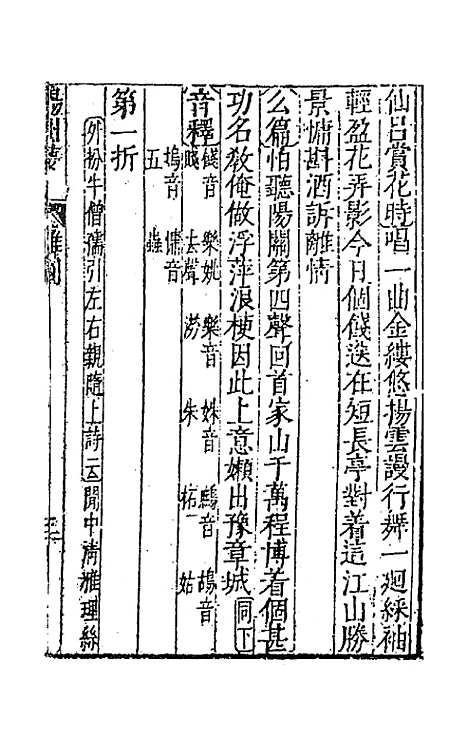 仙呂賞花時唱一曲金縷悠揚雲謾行舞一廻綵袖
輕盈花弄影今日個餞送在短長亭對着這江山勝
景慵斟酒訴離情
么篇怕聽陽關第四聲回首家山千萬程博着個甚
功名敎俺做浮萍浪梗因此上意嬾出豫章城同下
音釋
餞音賤
樂姚去聲
樂音澇
姝音朱
鷓音柘
鴣音姑
塢音五
慵音蟲
第一折
外扮牛僧孺引左右親隨上詩云閒中淸雅理絲
雜劇
三